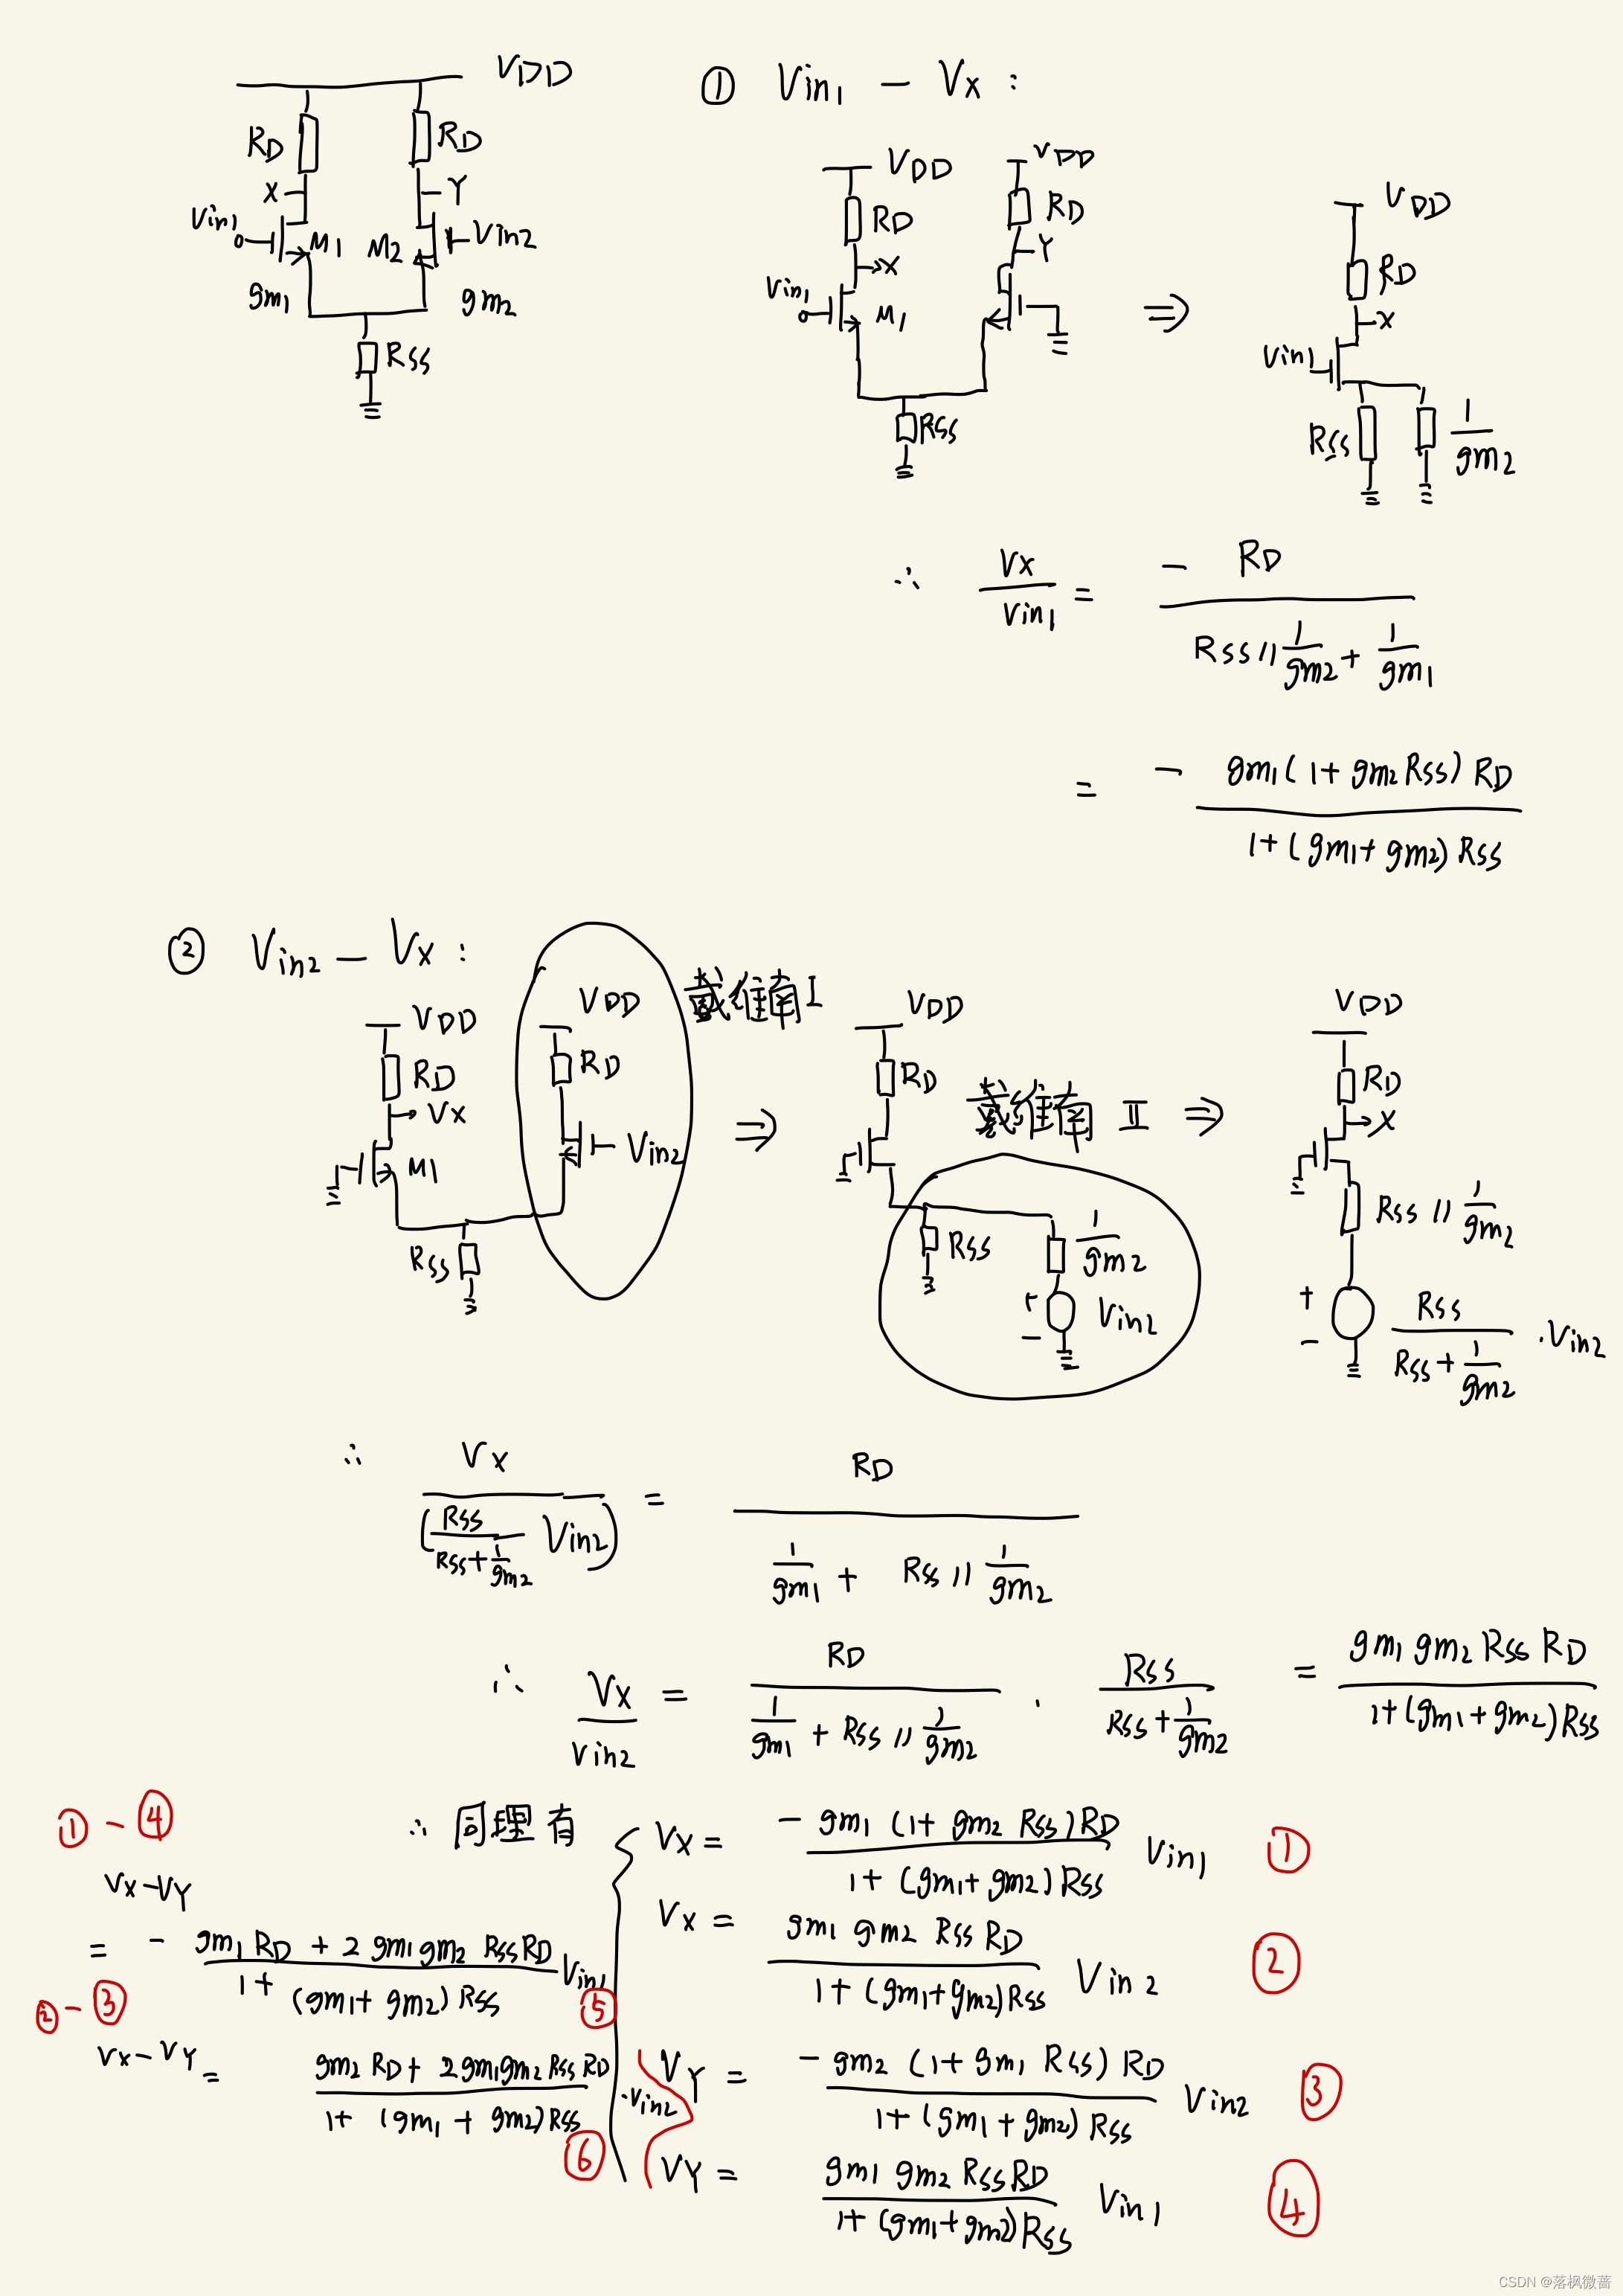 V_DD
R_D
R_D
X
Y
Vin1
M1
M2
Vin2
gm1
gm2
Rss
① Vin1 - Vx :
V_DD
V_DD
R_D
R_D
X
Y
Vin1
M1
Rss
⇒
V_DD
R_D
X
Vin1
Rss
1/gm2
∴ Vx/Vin1 = - R_D/(Rss // 1/gm2 + 1/gm1)
= - gm1(1+gm2Rss)R_D/(1+(gm1+gm2)Rss)
② Vin2 - Vx :
V_DD
V_DD
R_D
R_D
Vx
M1
Vin2
Rss
戴维南 I
⇒
V_DD
R_D
Rss
1/gm2
+
-
Vin2
戴维南 II ⇒
V_DD
R_D
X
Rss // 1/gm2
+
-
Rss/(Rss+1/gm2) · Vin2
∴ Vx/(Rss/(Rss+1/gm2) Vin2) = R_D/(1/gm1 + Rss // 1/gm2)
∴ Vx/Vin2 = R_D/(1/gm1 + Rss // 1/gm2) · Rss/(Rss+1/gm2) = gm1 gm2 Rss R_D/(1+(gm1+gm2)Rss)
∴ 同理有
Vx = - gm1 (1+gm2 Rss)R_D/(1+(gm1+gm2)Rss) Vin1 ①
Vx = gm1 gm2 Rss R_D/(1+(gm1+gm2)Rss) Vin2 ②
V_Y = - gm2 (1+gm1 Rss) R_D/(1+(gm1+gm2)Rss) Vin2 ③
V_Y = gm1 gm2 Rss R_D/(1+(gm1+gm2)Rss) Vin1 ④
① - ④
Vx-V_Y
= - (gm1 R_D + 2 gm1 gm2 Rss R_D)/(1+(gm1+gm2)Rss) Vin1 ⑤
② - ③
Vx-V_Y = (gm2 R_D + 2gm1gm2 Rss R_D)/(1+(gm1+gm2)Rss) · Vin2 ⑥
CSDN @落枫微蔷